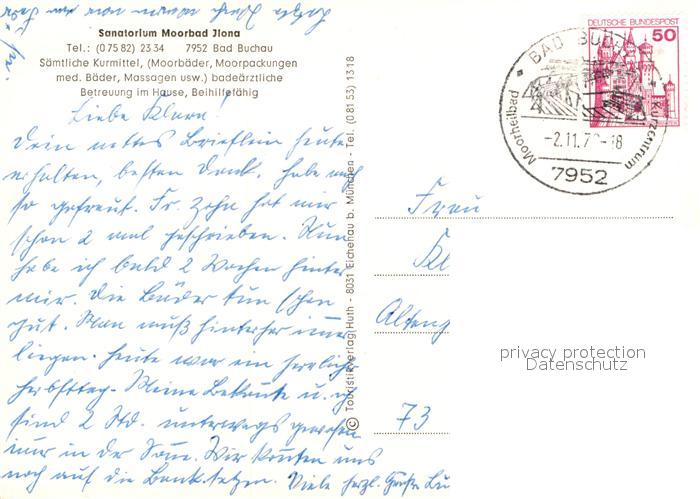 Sanatorium Moorbad Jlona
Tel.: (0 75 82) 23 34 7952 Bad Buchau
Sämtliche Kurmittel, (Moorbäder, Moorpackungen
med. Bäder, Massagen usw.) badeärztliche
Betreuung im Hause, Beihilfefähig
Liebe Klara!
Dein nettes Brieflein heute
erhalten, besten Dank, habe mich
so gefreut. Fr. Zehn hat mir
schon 2 mal geschrieben. Nun
habe ich bald 2 Wochen hinter
mir. Die Bäder tun schon
gut. Man muß hinterher immer
liegen. Heute war ein herrlicher
Herbsttag. Meine Bekannte u. ich
sind 2 Std. unterwegs gewesen
nur in der Sonne. Wir konnten uns
noch auf die Bank setzen. Viele herzl. Grüße
© Touristikverlag Huth - 8031 Eichenau b. München - Tel. (0 81 53) 13 18
DEUTSCHE BUNDESPOST
50
BAD BUCHAU
Moorheilbad Kurzentrum
-2.11.7 -18
7952
Frau
Kl
Alteng
73
privacy protection
Datenschutz